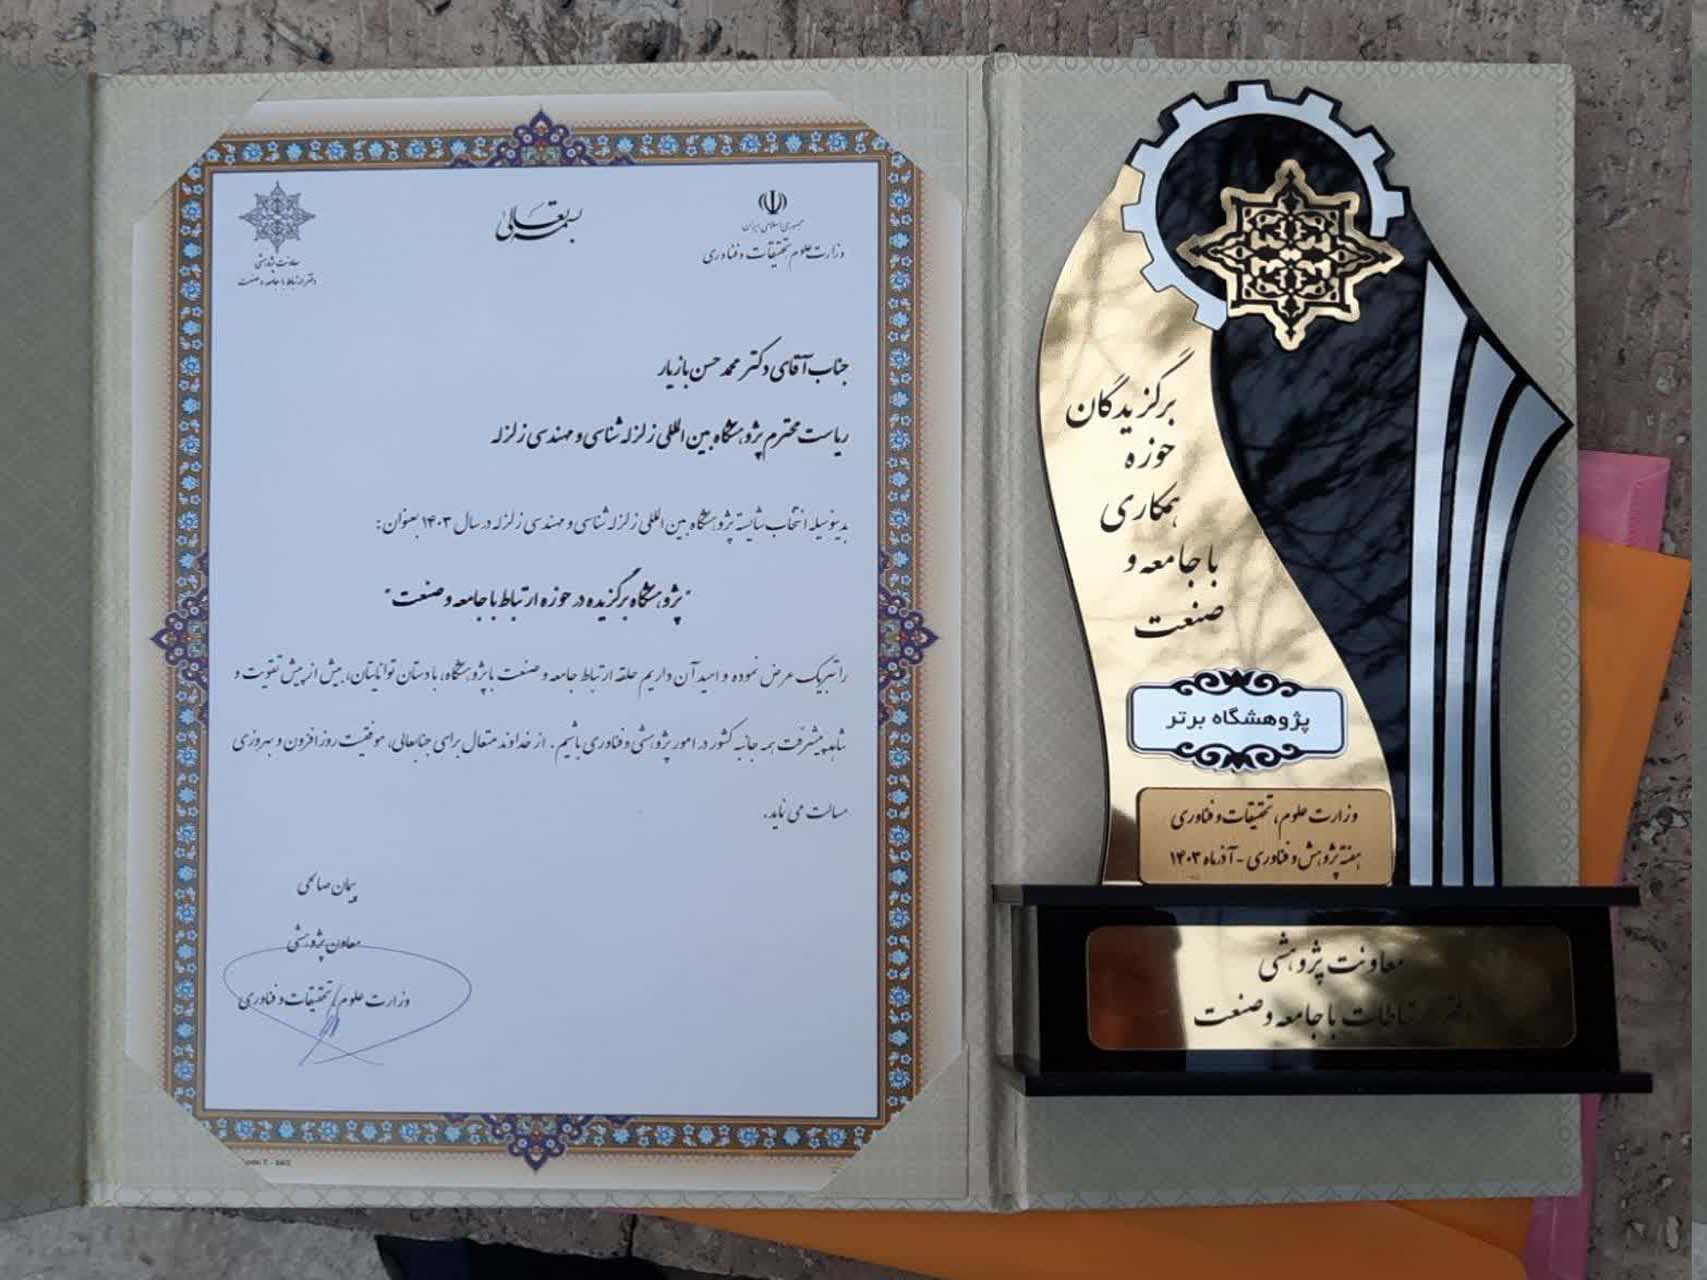 بسمه تعالی
جمهوری اسلامی ایران
وزارت علوم، تحقیقات و فناوری
معاونت پژوهشی
دفتر ارتباط با جامعه و صنعت
جناب آقای دکتر محمد حسن بازیار
ریاست محترم پژوهشگاه بین المللی زلزله شناسی و مهندسی زلزله
بدینوسیله انتخاب شایسته پژوهشگاه بین المللی زلزله شناسی و مهندسی زلزله در سال ۱۴۰۳ بعنوان:
"پژوهشگاه برگزیده در حوزه ارتباط با جامعه و صنعت"
را تبریک عرض نموده و امید آن داریم حلقه ارتباط جامعه و صنعت با پژوهشگاه، با دستان توانایتان، بیش از پیش تقویت و
شاهد پیشرفت همه جانبه کشور در امور پژوهشی و فناوری باشیم. از خداوند متعال برای جنابعالی، موفقیت روز افزون و بهروزی
مسالت می نماید.
پیمان صالحی
معاون پژوهشی
وزارت علوم، تحقیقات و فناوری
برگزیدگان
حوزه
همکاری
با جامعه و
صنعت
پژوهشگاه برتر
وزارت علوم، تحقیقات و فناوری
هفته پژوهش و فناوری - آذرماه ۱۴۰۳
معاونت پژوهشی
دفتر ارتباطات با جامعه و صنعت